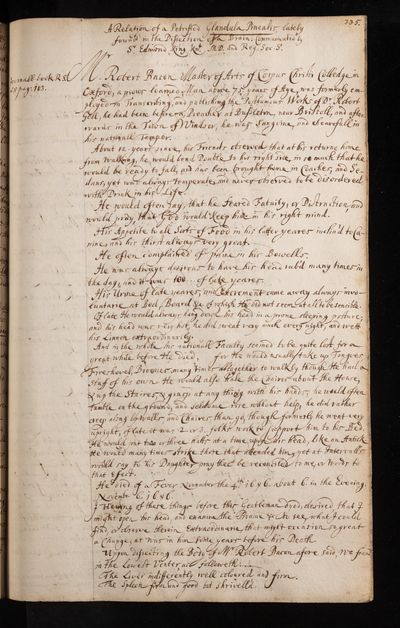 235.
A Relation of a Petrified Glandula Pinealis, lately
found in the Dissection of a Brain Communicated by
Sr. Edmond King Kt. M.D. and Reg. Soc. S.
Journall book R.S.
pag: 103.
Mr. Robert Bacon Master of Arts of Corpus Christi Colledge in
Oxford, a pious learned Man above 75 years of Age, was formerly em-
ployed in Transcribing, and publishing the Posthumus Works of Dr. Robert
Gell, he had been before a Preacher at near Bristoll, and after-
wards in the Town of Windsor, he was Sanguine, and Chearefull in
his naturall Temper.
About 12 years since, his Friends observed that at his returne home
from walking, he would bend Double to his right side, in so much that he
would be ready to fall, and has been brought home in Coaches, and Se-
dans, yet was always Temperate, and never observed to be disordered
with Drink in his Life.
He would often say, that he feared Fatuity, or Distraction, and
would pray, that God would keep him in his right mind.
His Appetite to all Sorts of Food in his latter yeares inclin'd to Ca-
nine, and his thirst always very great.
He often complained of paine in his Bowells.
He was always desirous to have his head rub'd many times in
the day, and it was 100 of late yeares
His Urine of late yeares, and Excrement came away always invo-
luntarie at Bed, Board &c of which He did not seem at all to be sensible.
Of late He would always hang down his head in a prone sleeping posture,
and his head was very hot, he did sweat very much every night, and wett
his Linnen extraordinarily.
And in the whole his rationall Faculty seemed to be quite lost for a
great while before He died, for He would usually take up Tonges,
Fireshovel, Broomes, many times alltogether to walk by though He had a
Staff of his own He would also Hale the Chaires about the House,
& up the Staires, & grasp at any thing with his hands, he would often
tumble on the ground, and seldome rise without help, he did rather
creep along by walls and Chaires than go, though formerly he went very
upright, of late it was 2 or 3. folks work to support him to his Bed.
He would put two or three hats at a time upon his head, like an Antick
He would many times strike those that attended him, yet at Intervalls
would say to his Daughter pray thee be reconciled to me, or words to
that effect.
He died of a Fever November the 4th 1686. about 6 in the Evening.
November 1686.
I Hearing of these things before this Gentleman dyed, desired that I
might open his head, and examine the Braine &c to see, what I could
find, or observe therein Extraordinarie, that might occasion so great
a Change, as was in him some yeares before his Death
Upon dissecting the Body of Mr Robert Bacon afore said, We found
in the Lowest Venter as followeth.
The Liver indifferently well coloured and firm.
The Spleen firm and good but shrivelld.